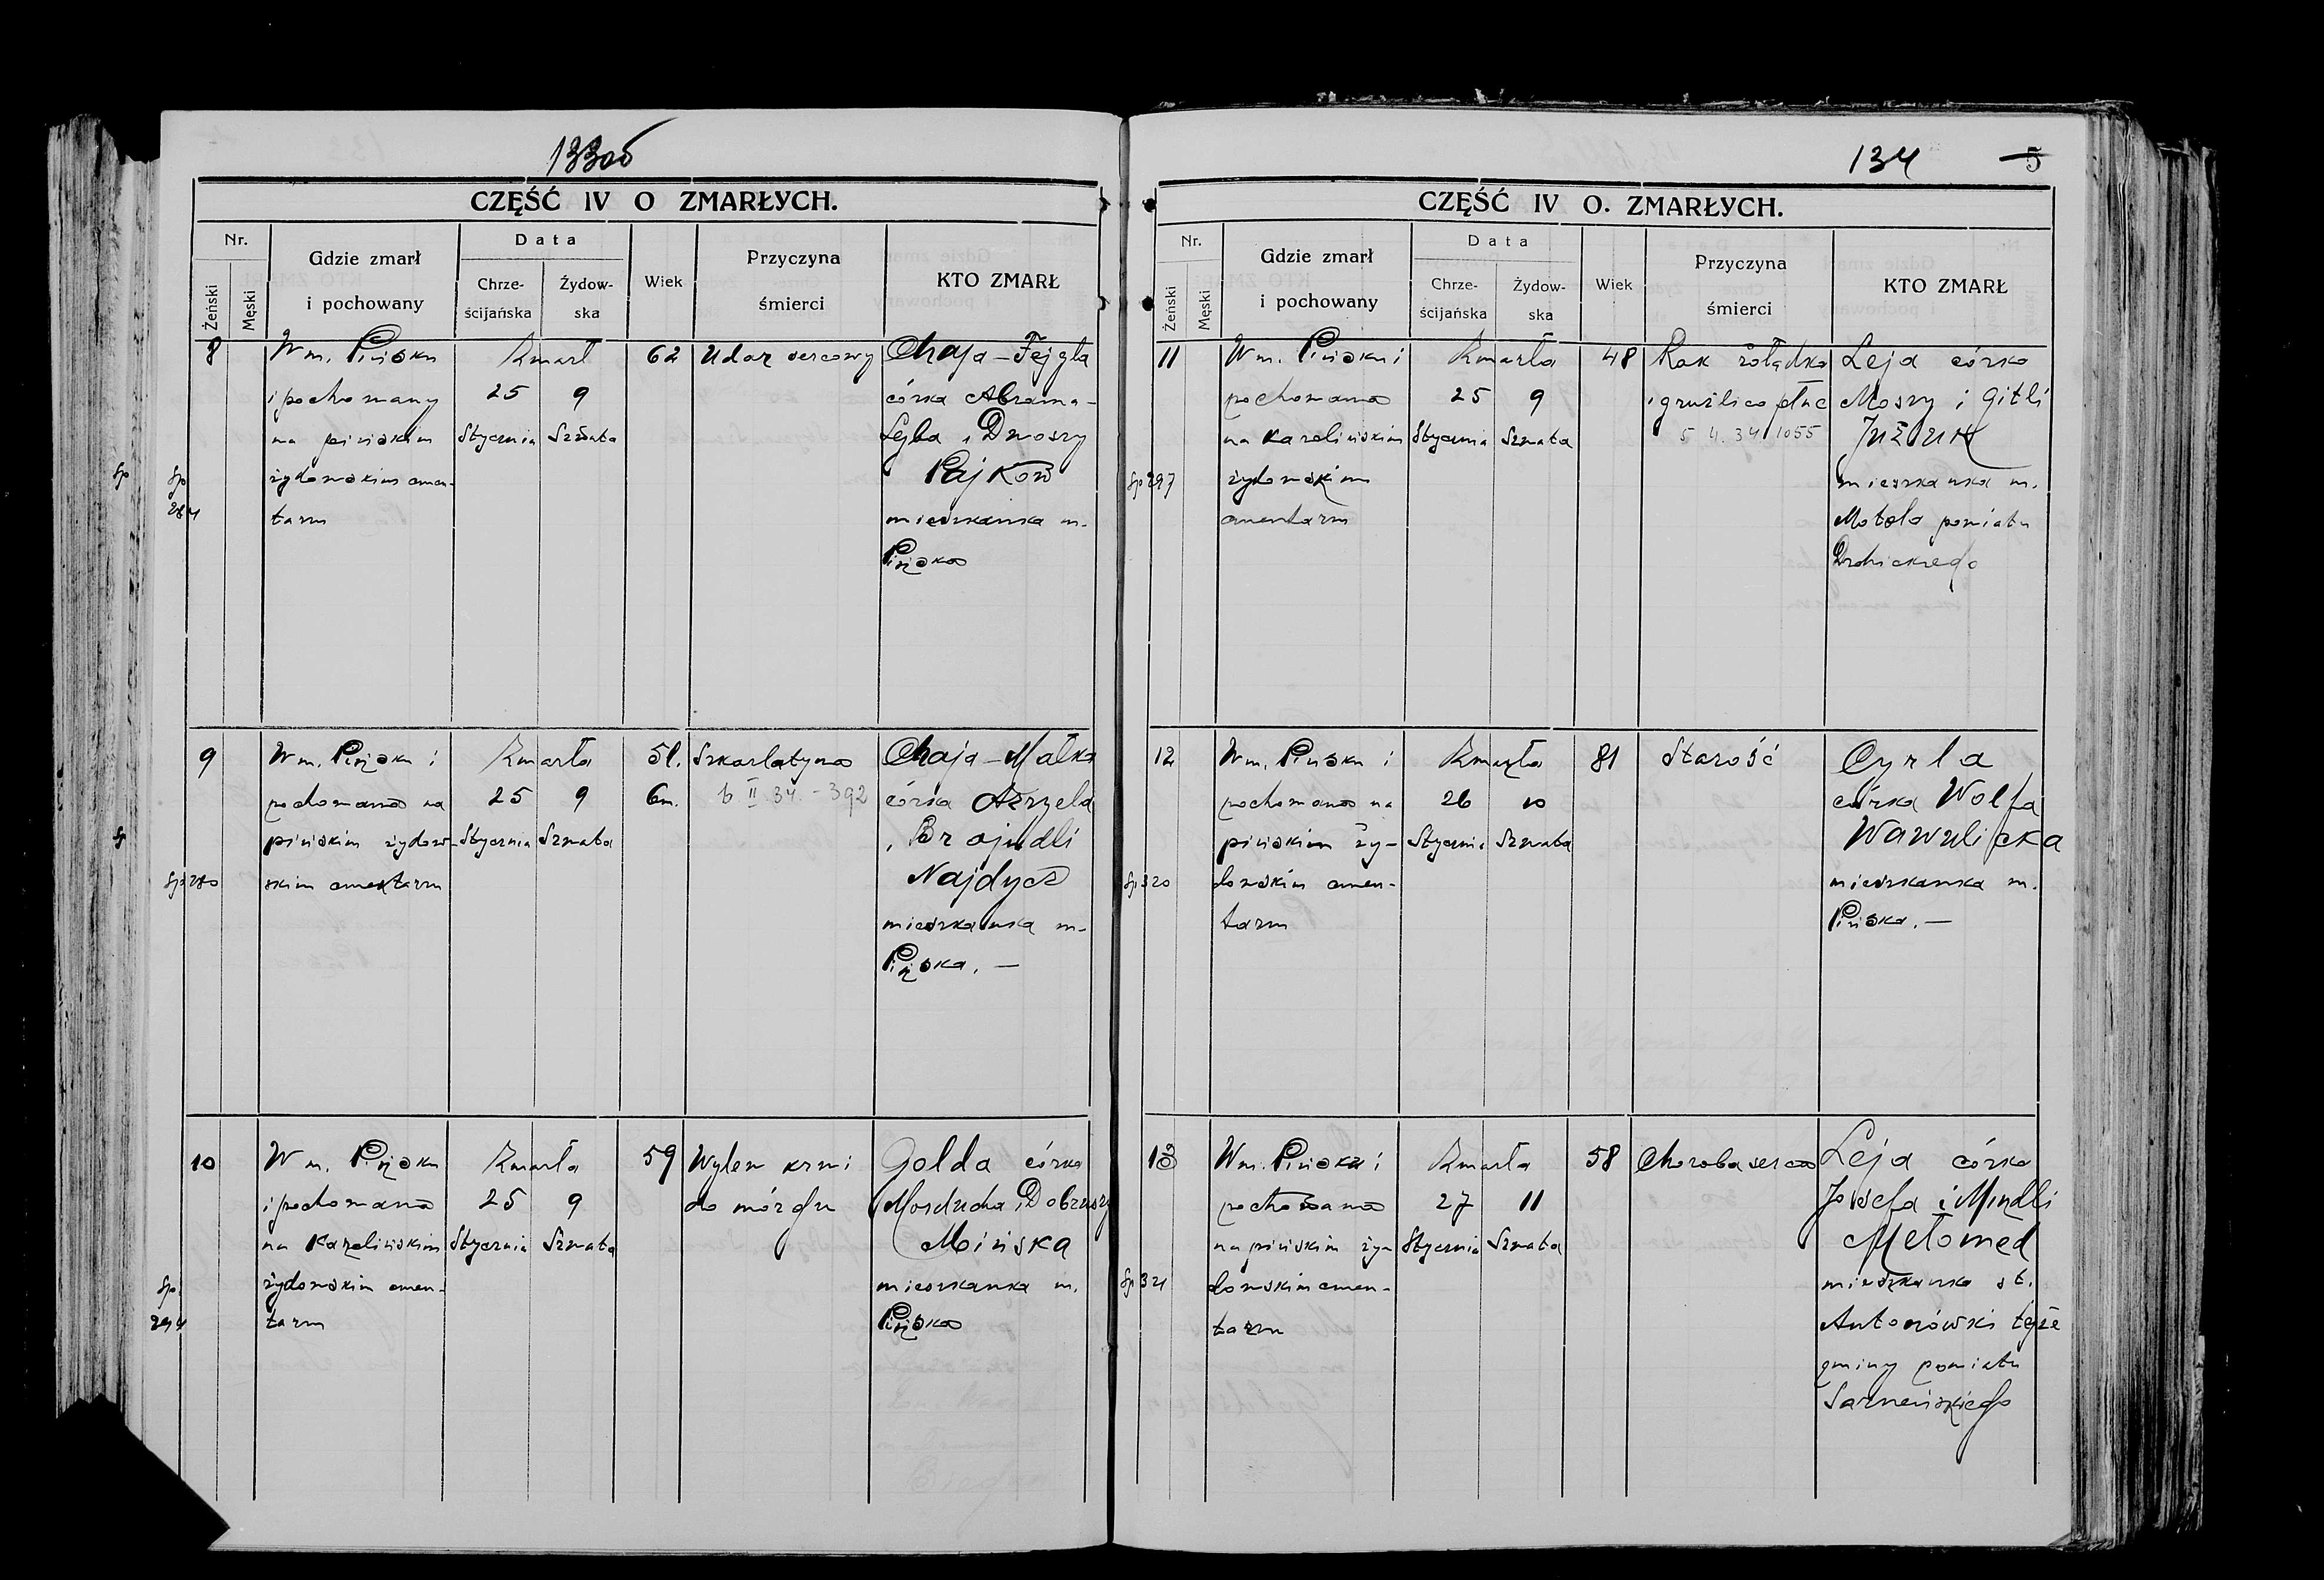 133об
CZĘŚĆ IV O ZMARŁYCH.
Nr.
Żeński
Męski
Gdzie zmarł
i pochowany
Data
Chrze-
ścijańska
Żydow-
ska
Wiek
Przyczyna
śmierci
KTO ZMARŁ
8
W m. Pińsku
i pochowany
na pińskim
żydowskim cmen-
tarzu
Zmarł
25 9
Stycznia Szwata
62
Udar sercowy
Chaja-Fejgla
córka Abrama-
Lejba i Dwoszy
Pajkow
mieszkanka m.
Pińska
Sp
284
9
W m. Pińsku i
pochowana na
pińskim żydow-
skim cmentarzu
Zmarła
25 9
Stycznia Szwata
5 l.
6 m.
Szkarlatyna
6 II 34. - 392
Chaja-Małka
córka Azryela
i Brajndli
Najdycz
mieszkanka m.
Pińska. —
Sp 280
10
W m. Pińsku
i pochowana
na Karolińskim
żydowskim cmen-
tarzu
Zmarła
25 9
Stycznia Szwata
59
Wylew krwi
do mózgu
Golda córka
Morducha i Dobruszy
Mińska
mieszkanka m.
Pińska
Sp.
294
134 5
CZĘŚĆ IV O. ZMARŁYCH.
Nr.
Żeński
Męski
Gdzie zmarł
i pochowany
Data
Chrze-
ścijańska
Żydow-
ska
Wiek
Przyczyna
śmierci
KTO ZMARŁ
11
W m. Pińsku i
pochowana
na Karolińskim
żydowskim
cmentarzu
Zmarła
25 9
Stycznia Szwata
48
Rak żołądka
i gruźlica płuc
5 4. 34 1055
Leja córka
Moszy i Gitli
Jużuk
mieszkanka m.
Motola powiatu
Drohickiego
Sp 297
12
W m. Pińsku i
pochowana na
pińskim ży-
dowskim cmen-
tarzu
Zmarła
26 10
Stycznia Szwata
81
Starość
Cyrla
córka Wolfa
Wawulicka
mieszkanka m.
Pińska. —
Sp 320
13
W m. Pińsku i
pochowana
na pińskim ży-
dowskim cmen-
tarzu
Zmarła
27 11
Stycznia Szwata
58
Choroba serca
Leja córka
Josefa i Mindli
Mełamed
mieszkanka st.
Antonówski tejże
gminy powiatu
Sarneńskiego
Sp 321